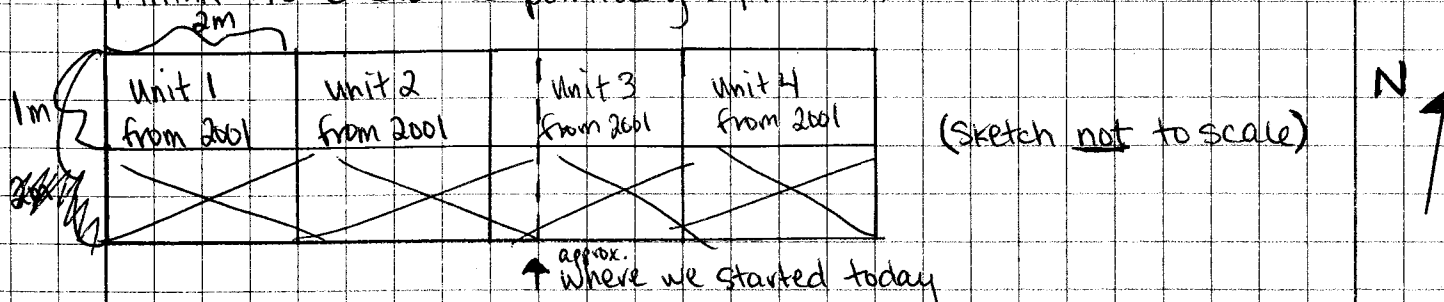 2m
1m
Unit 1
from 2001
Unit 2
from 2001
Unit 3
from 2001
Unit 4
from 2001
(Sketch not to scale)
N
approx.
where we started today